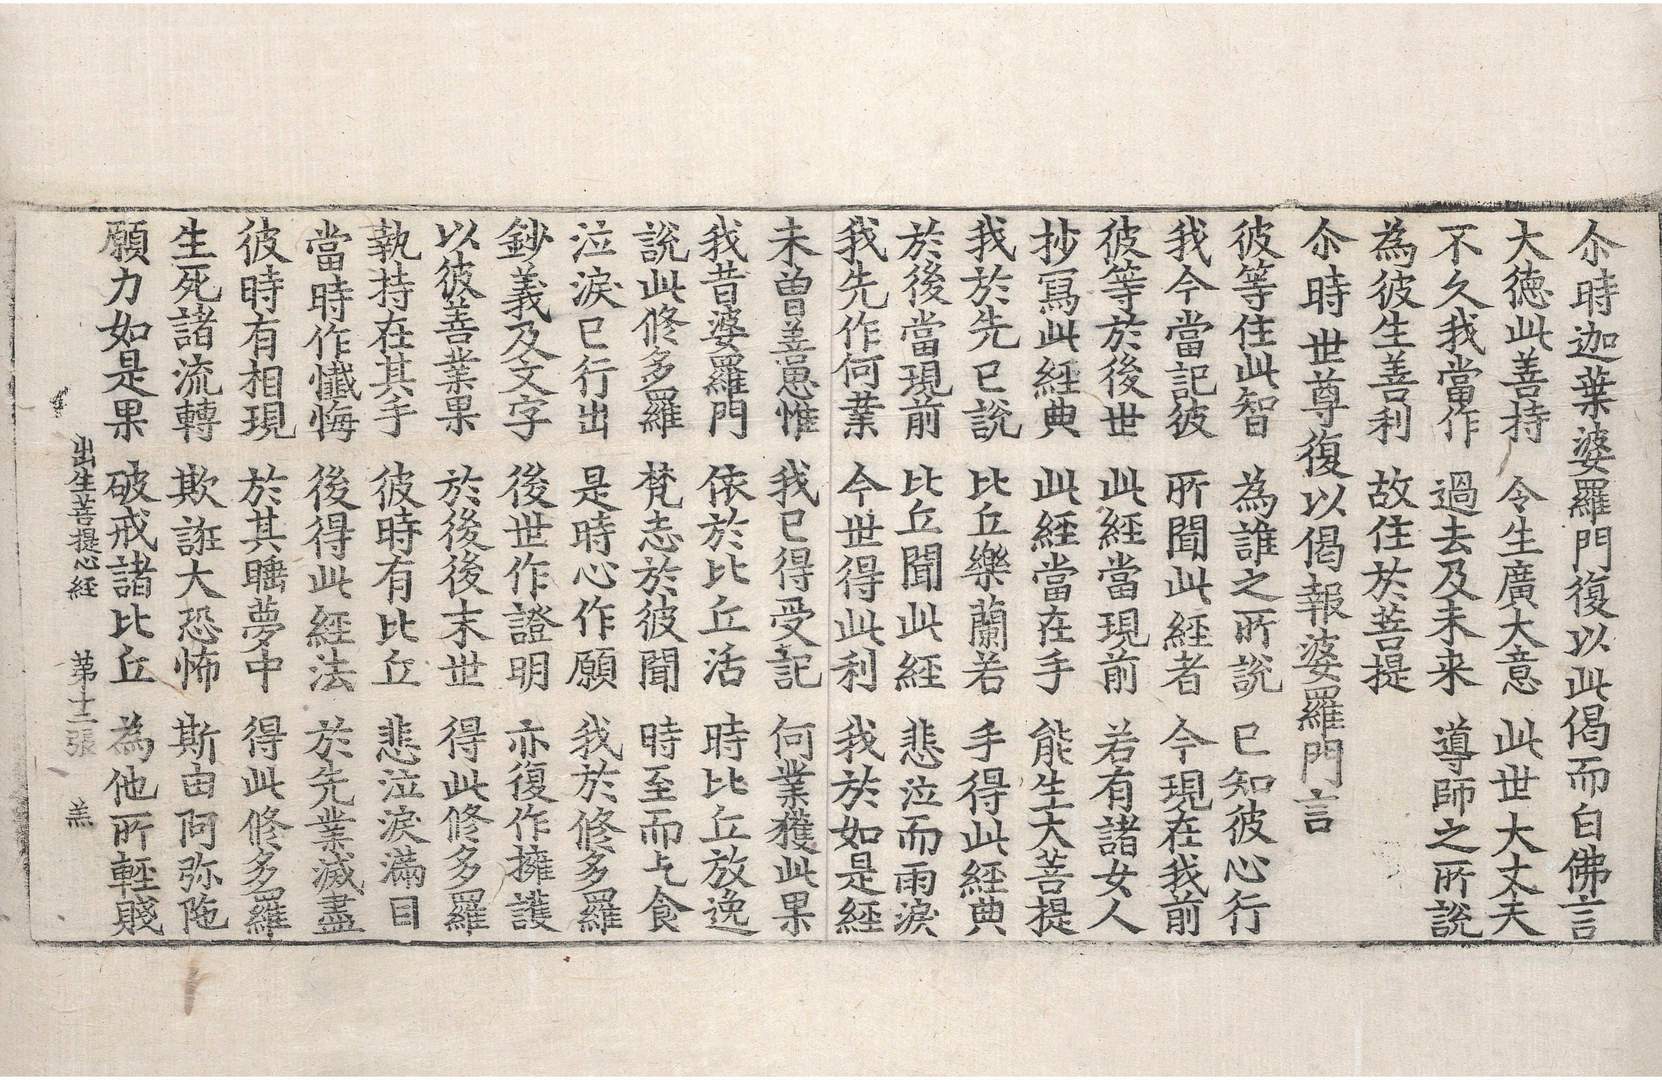 尒時迦葉婆羅門復以此偈而白佛言
大徳此善持　令生廣大意　此世大丈夫
不久我當作　過去及未来　導師之所說
為彼生善利　故住於菩提
尒時世尊復以偈報婆羅門言
彼等住此智　為誰之所說　已知彼心行
我今當記彼　所聞此經者　今現在我前
彼等於後世　此經當現前　若有諸女人
抄寫此經典　此經當在手　能生大菩提
我於先已說　比丘樂蘭若　手得此經典
於後當現前　比丘聞此經　悲泣而雨淚
我先作何業　今世得此利　我於如是經
未曽善思惟　我已得受記　何業獲此果
我昔婆羅門　依於比丘活　時比丘放逸
說此修多羅　梵志於彼聞　時至而乞食
泣淚已行出　是時心作願　我於修多羅
鈔義及文字　後世作證明　亦復作擁護
以彼善業果　於後後末世　得此修多羅
執持在其手　彼時有比丘　悲泣淚滿目
當時作懺悔　後得此經法　於先業滅盡
彼時有相現　於其睡夢中　得此修多羅
生死諸流轉　欺誑大恐怖　斯由阿弥陁
願力如是果　破戒諸比丘　為他所輕賤
出生菩提心經　第十二張　羔